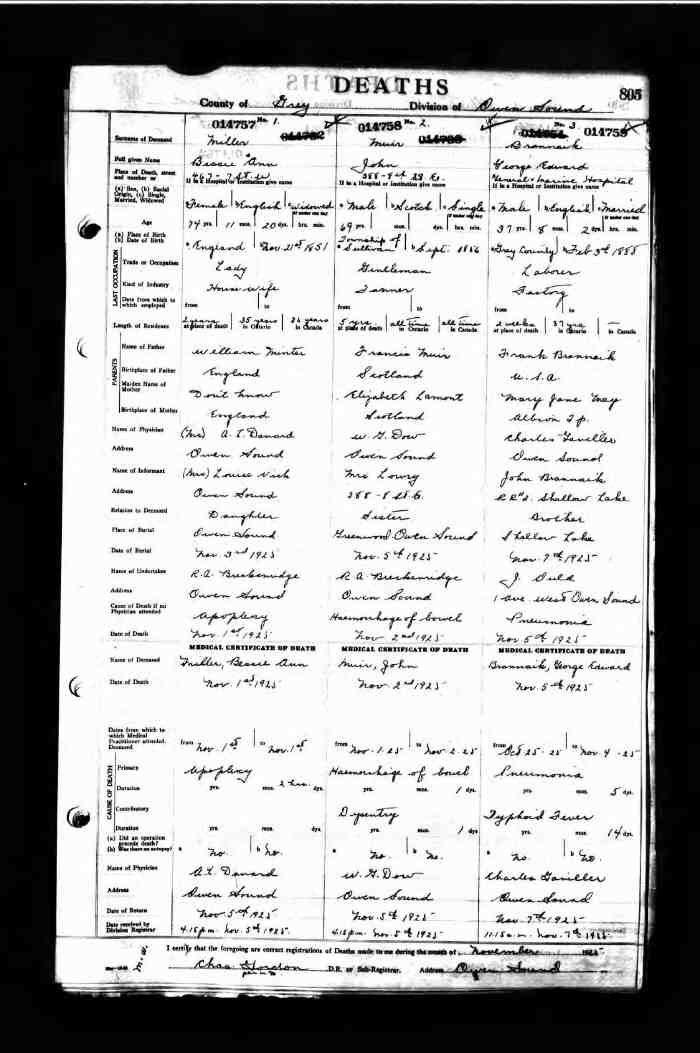 DEATHS
805
County of Grey Division of Owen Sound
No. 1. No. 2. No. 3.
014757 014758 014759
Surname of Deceased Miller Muir Brannaik
Full given Name Bessie Ann John George Edward
Place of Death, street and number or 467 - 7 St. W 388 - 8 St. General Marine Hospital
If in a Hospital or Institution give name If in a Hospital or Institution give name If in a Hospital or Institution give name
(a) Sex, (b) Racial Origin, (c) Single, Married, Widowed
a Female b English c Widowed a Male b Scotch c Single a Male b English c Married
Age 74 yrs. 11 mos. 20 dys. hrs. min. 69 yrs. mos. dys. hrs. min. 37 yrs. 8 mos. 2 dys. hrs. min.
(a) Place of Birth (b) Date of Birth a England Nov. 21st 1851 Township of Sullivan b Sept. 1856 a Grey County b Feb 3rd 1888
LAST OCCUPATION
Trade or Occupation Lady Gentleman Laborer
Kind of Industry House wife Tanner Factory
Date from which to which employed from to from to from to
Length of Residence 2 years at place of death 35 years in Ontario years in Canada 5 yrs. at place of death all time in Ontario all time in Canada 2 weeks at place of death 37 yrs in Ontario — in Canada
PARENTS
Name of Father William Minter Francis Muir Frank Brannaik
Birthplace of Father England Scotland U.S.A.
Maiden Name of Mother Don't know Elizabeth Lamont Mary Jane May
Birthplace of Mother England Scotland Albion Tp.
Name of Physician A. L. Danard W. G. Dow Charles Gaviller
Address Owen Sound Owen Sound Owen Sound
Name of Informant (Mrs) Louise Mrs Lowry John Brannaik
Address Owen Sound 388 - 8 St. Shallow Lake
Relation to Deceased Daughter Sister Brother
Place of Burial Owen Sound Greenwood Owen Sound Shallow Lake
Date of Burial Nov. 3rd 1925 Nov. 5th 1925 Nov. 7th 1925
Name of Undertaker R. A. Breckenridge R. A. Breckenridge J. Ould
Address Owen Sound Owen Sound 1 ave. west Owen Sound
Cause of Death if no Physician attended Apoplexy Haemorrhage of bowel Pneumonia
Date of Death Nov. 1st 1925 Nov 2nd 1925 Nov 5th 1925
MEDICAL CERTIFICATE OF DEATH MEDICAL CERTIFICATE OF DEATH MEDICAL CERTIFICATE OF DEATH
Name of Deceased Miller, Bessie Ann Muir, John Brannaik, George Edward
Date of Death Nov. 1st 1925 Nov. 2nd 1925 Nov. 5th 1925
Dates from which to which Medical Practitioner attended Deceased from Nov. 1st to Nov. 1st from Nov. 1-25 to Nov 2-25 from Oct 25-25 to Nov. 4-25
CAUSE OF DEATH
Primary Apoplexy Haemorrhage of bowel Pneumonia
Duration yrs. mos. 2 hrs. dys. yrs. mos. 1 dys. yrs. mos. 5 dys.
Contributory Dysentry Typhoid Fever
Duration yrs. mos. dys. yrs. mos. 1 dys. yrs. mos. 14 dys.
(a) Did an operation precede death? (b) Was there an autopsy? a no. b no. a no. b no. a no. b no.
Name of Physician A. L. Danard W. G. Dow Charles Gaviller
Address Owen Sound Owen Sound Owen Sound
Date of Return Nov 5th 1925 Nov. 5th 1925 Nov. 7th 1925
Date received by Division Registrar 4.15 p.m. Nov. 5th 1925. 4.15 p.m. Nov 5th 1925 11.15 a.m. Nov. 7th 1925
I certify that the foregoing are correct registrations of Deaths made to me during the month of November 1925
Chas Gordon D.R. or Sub-Registrar. Address Owen Sound